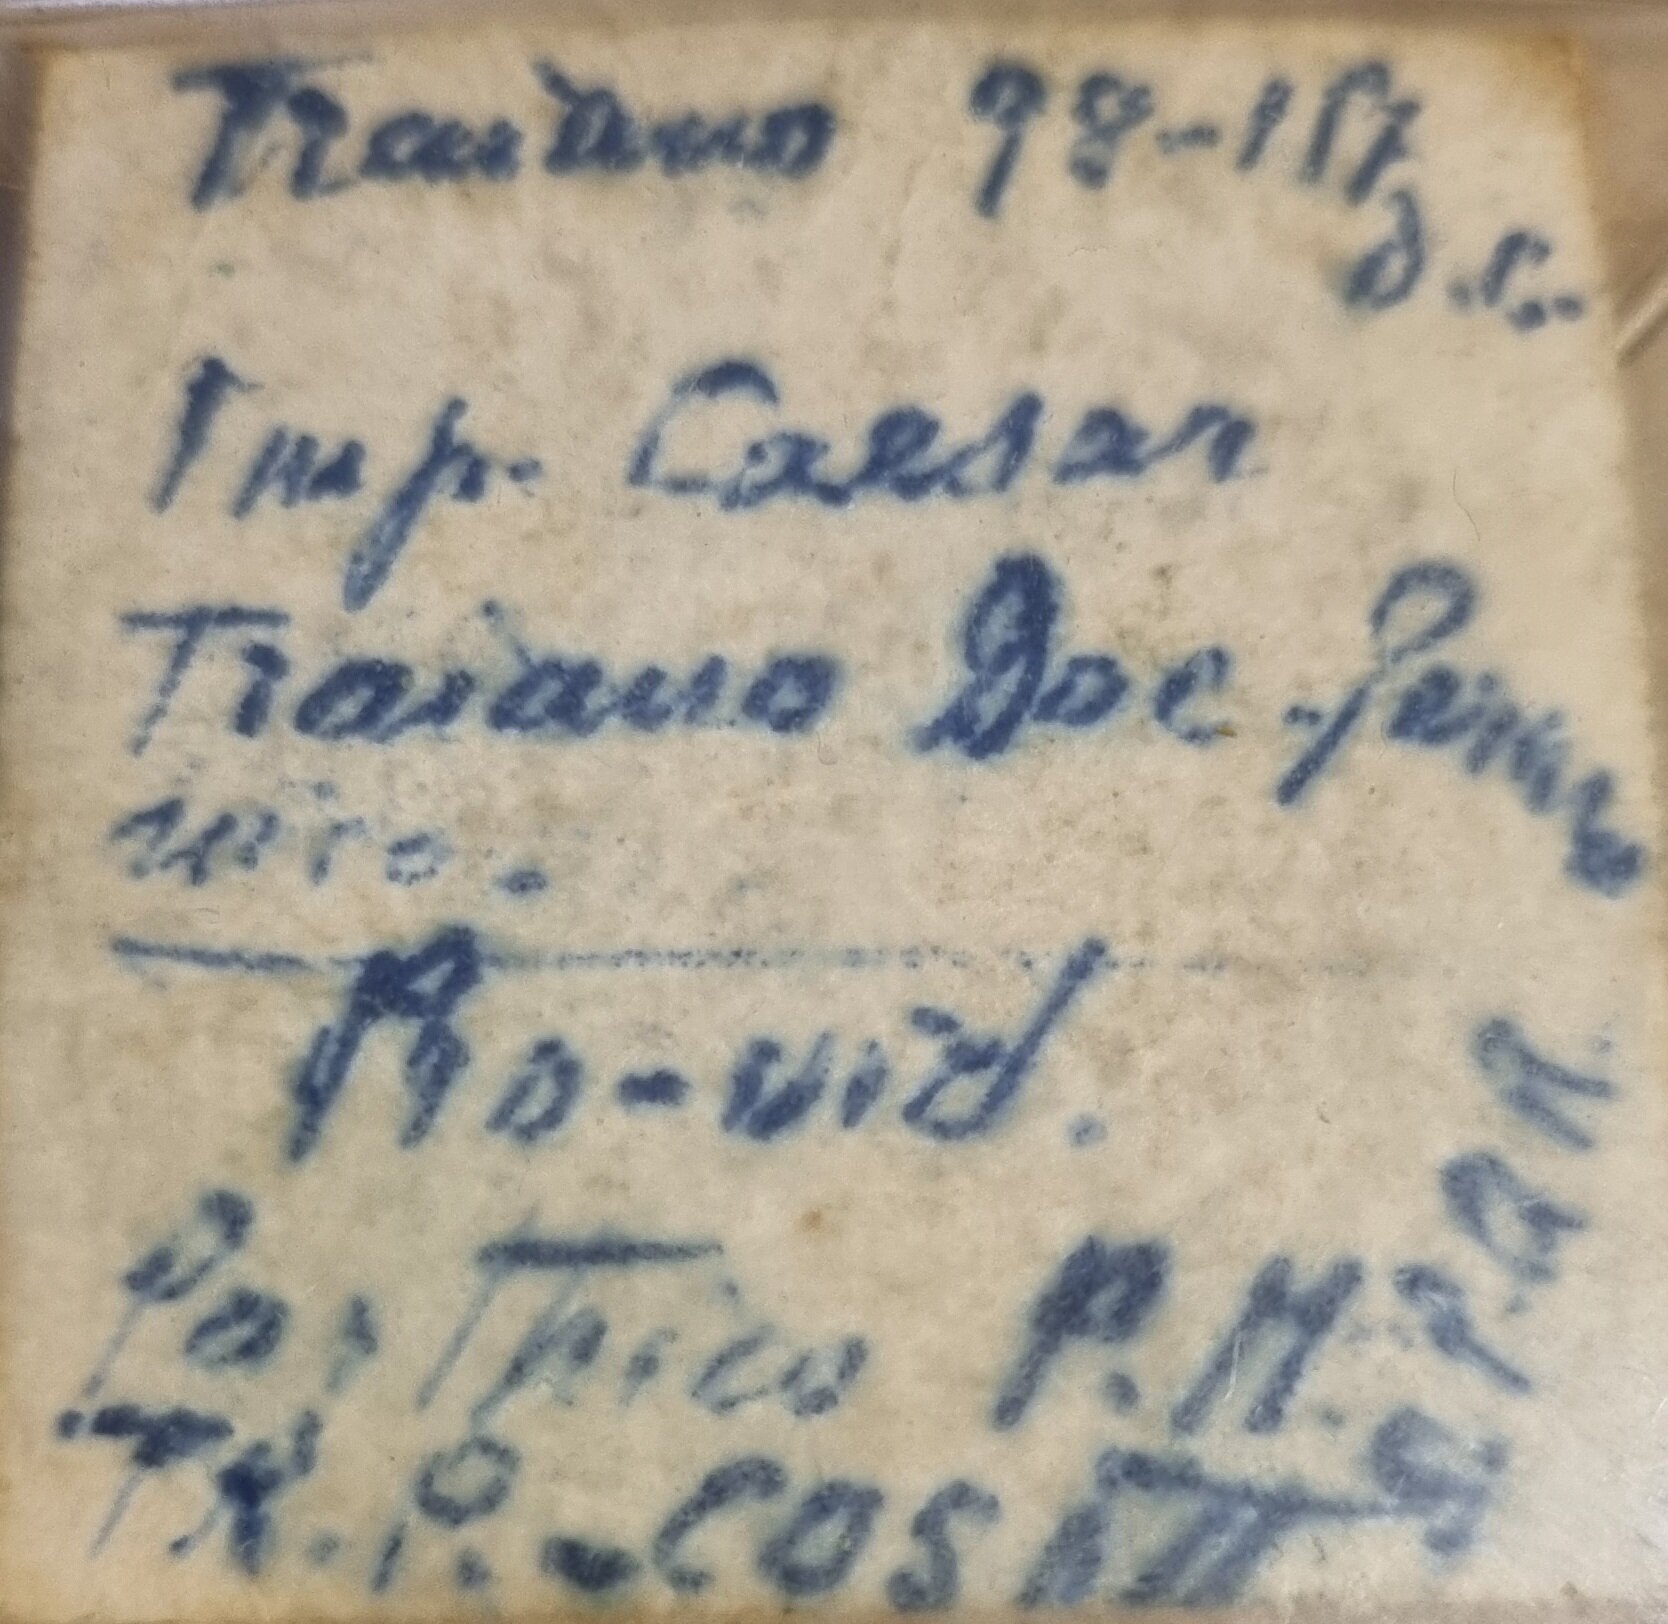 Traiano 98-117
d.C.
Imp. Caesar
Traiano Dac. Germa
nico.
Ro-vid.
Parthico P.M.
TR. P. - COS VI P.P.